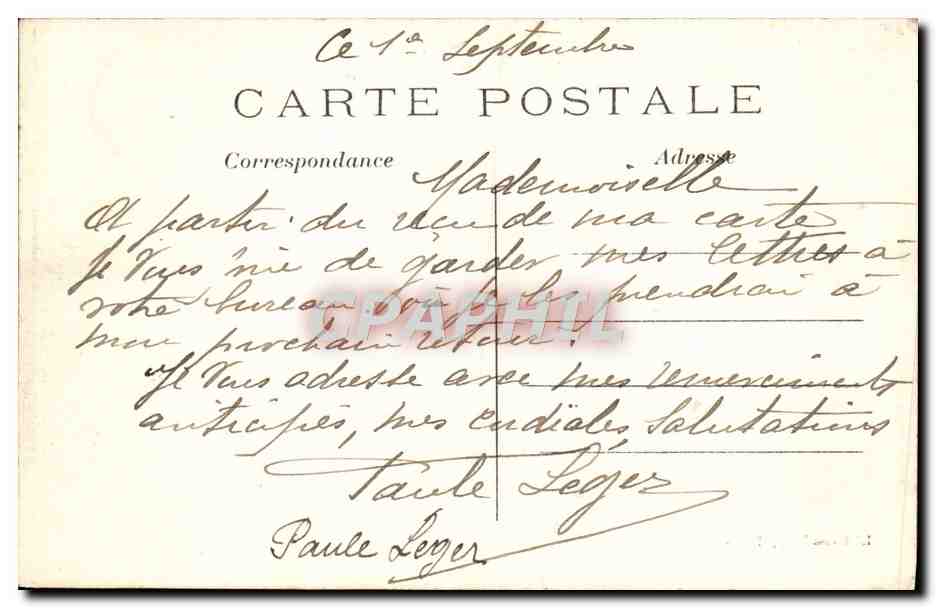 Ce 1er Septembre
CARTE POSTALE
Correspondance Adresse
Mademoiselle
A partir du reçu de ma carte
je vous prie de garder mes lettres à
votre bureau où je les prendrai à
mon prochain retour.
Je vous adresse avec mes remerciements
anticipés, mes cordiales salutations
Paule Leger
Paule Leger
CPAPHIL